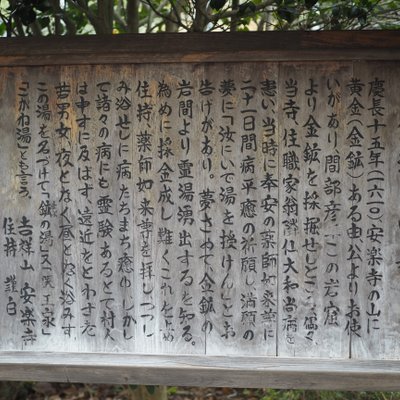 慶長十五年(一六一〇)安楽寺の山に
黄金(金鉱)ある由公よりお使
いがあり間部彦
より金鉱を採掘せしところ偶々
当寺住職家翁禅住大和尚病を
患い当時に奉安の薬師如来
二十一日間病平癒の祈願し満願の
夢に「汝にいで湯を授けん」とお
告げがあり。夢さめて金鉱の
岩間より霊湯湧出するを知る。
為めに採金成し難くこれを止め
住持、薬師如来尊を拝しつつ
み浴せしに病たちまち癒ゆ。しかし
て諸々の病にも霊験あるとて村人
は申すに及ばず、遠近をとわず老
若男女、夜となく昼となく浴みす
この湯を名づけて「鉱の湯」又「医王家
こがね湯」とも言う。
吉祥山 安楽寺
住持 謹白